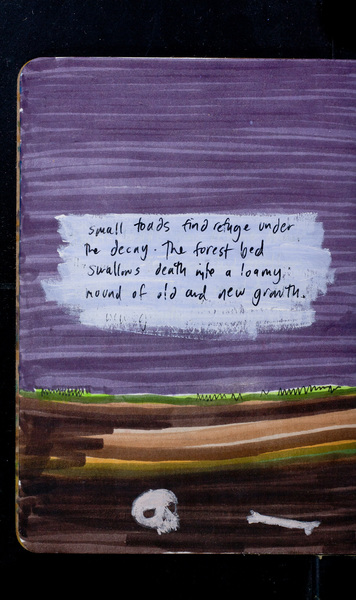 small toads find refuge under
the decay. The forest bed
swallows death into a loamy
mound of old and new growth.